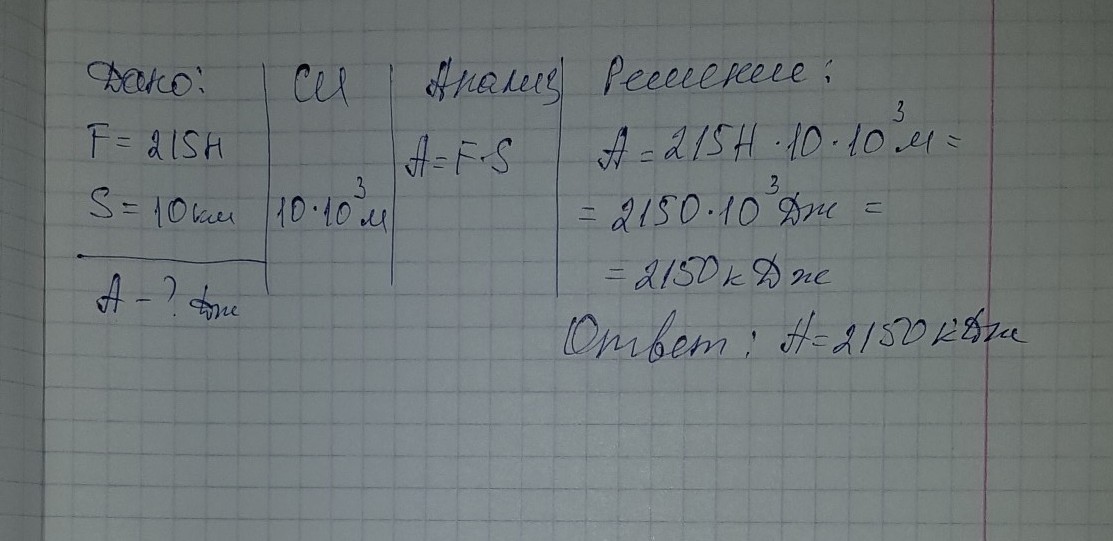 Дано:
F = 215Н
S = 10км
А - ? Дж
СИ
10·10³м
Анализ
A = F·S
Решение:
А = 215Н·10·10³м =
= 2150·10³Дж =
= 2150кДж
Ответ: А = 2150кДж